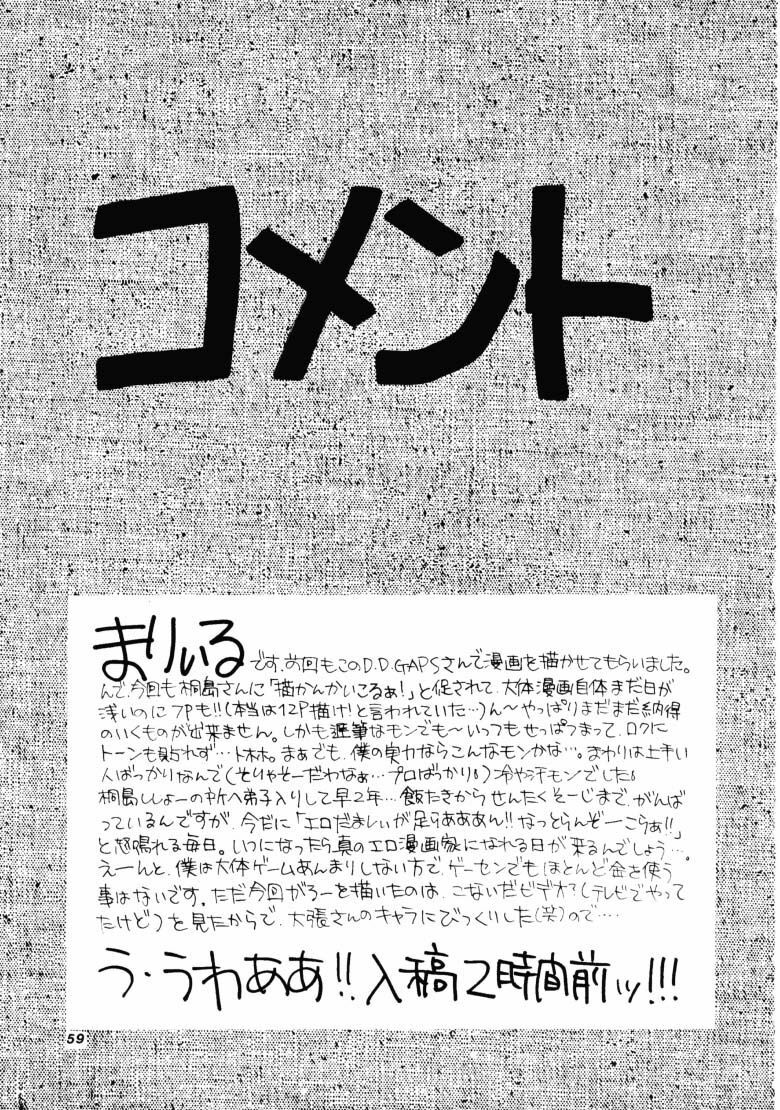 コメント
まりぃるです、前回もこのD.D.GAPSさんで漫画を描かせてもらいました。
んで今回も桐島さんに「描かんかいこるぁ!」と促されて、大体漫画自体まだ日が
浅いのに7Pも!!(本当は12P描け!と言われていた…)ん～やっぱりまだまだ納得
のいくものが出来ません。しかも遅筆なモンでも～いっつもせっぱつまって、ロクに
トーンも貼れず…トホホ。まぁでも、僕の実力ならこんなモンかな…。まわりは上手い
人ばっかりなんで(そりゃそーだわなぁ…プロばっかり)冷や汗モンでした
桐島ししょーの所へ弟子入りして早2年…飯たきからせんたくそーじまで、がんば
っているんですが、今だに「エロだましぃが足らあああん!!なっとらんぞーーこらぁ!!」
と怒鳴れる毎日。いつになったら真のエロ漫画家になれる日が来るんでしょう…。
えーんと、僕は大体ゲームあんまりしない方で、ゲーセンでもほとんど金を使う
事はないです。ただ今回がろーを描いたのは、こないだビデオ?(テレビでやって
たけど)を見たからで、大張さんのキャラにびっくりした(笑)ので…
う・うわああ!!入稿2時間前ッ!!!
59